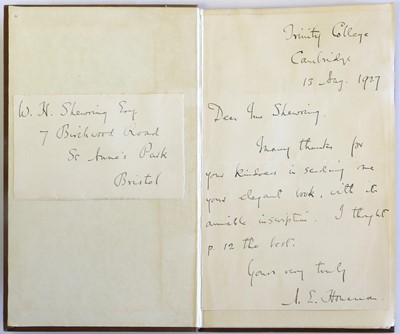 W. H. Shewring Esq
7 Birchwood Road
St Anne's Park
Bristol
Trinity College
Cambridge
13 Aug. 1927
Dear Mr Shewring,
Many thanks for
your kindness in sending me
your elegant book, with its
amiable inscription. I thought
p. 12 the best.
Yours very truly
A. E. Housman.